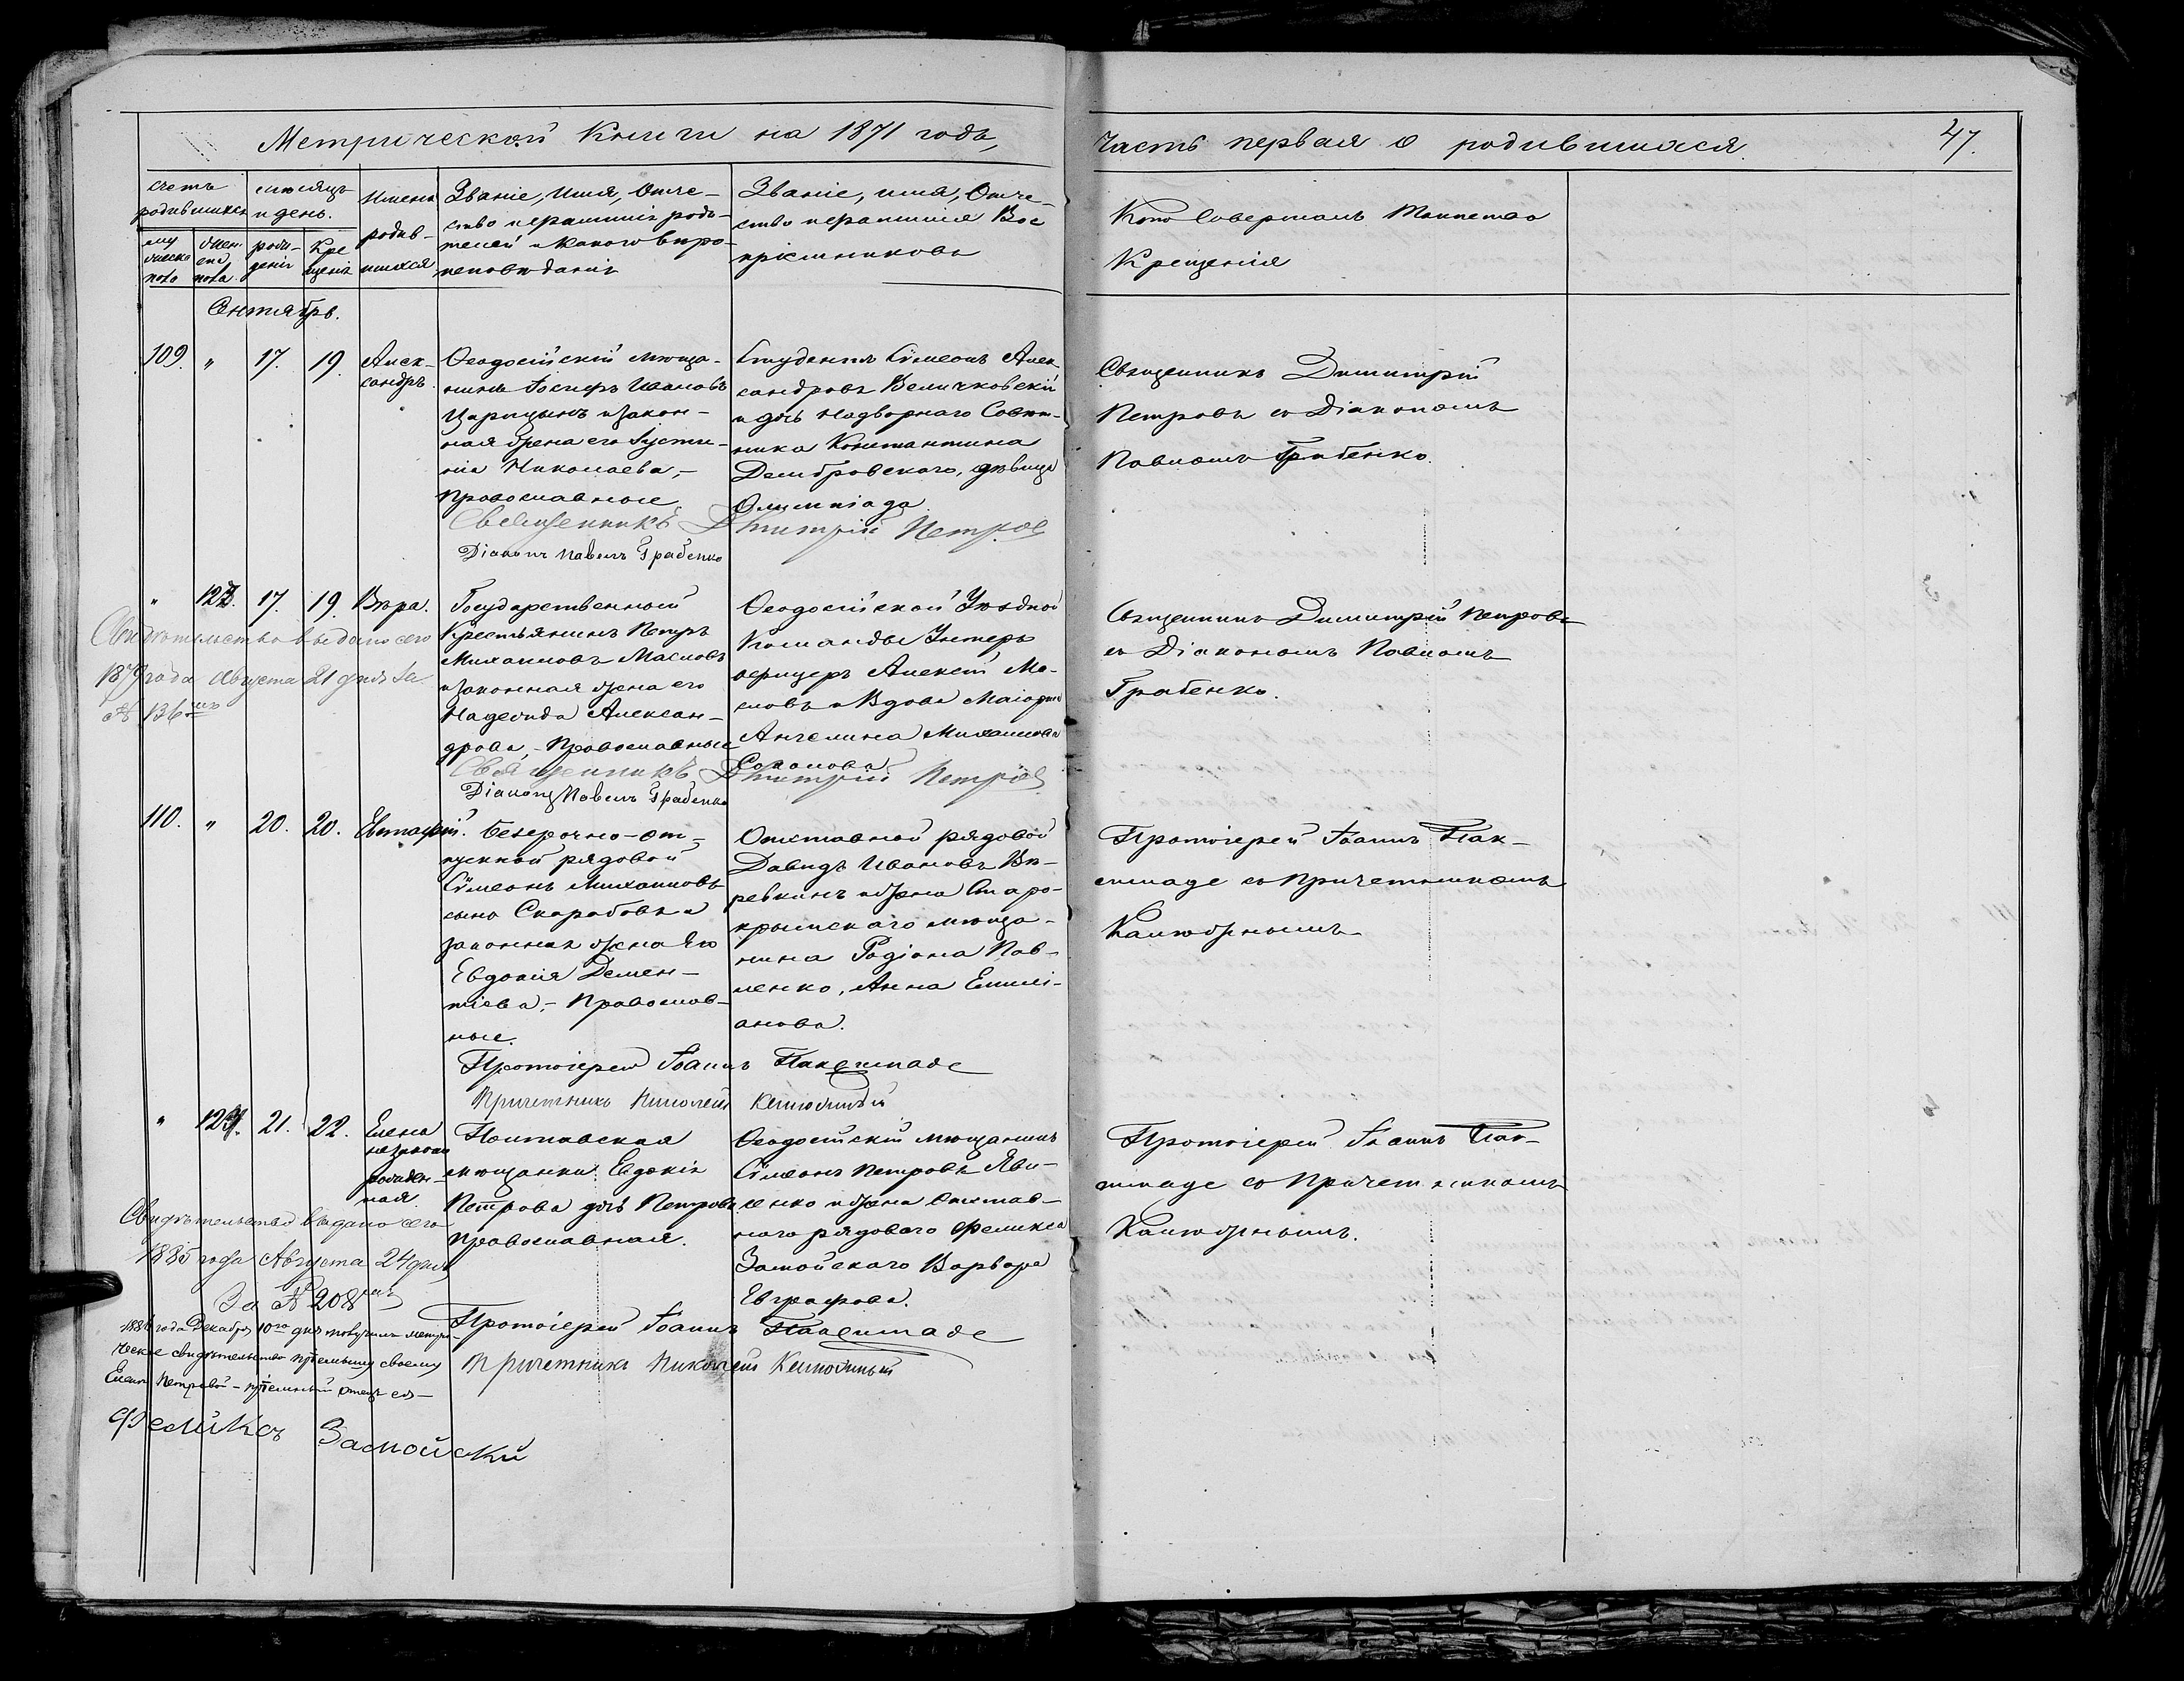 Метрической Книги на 1871 годъ,
Часть первая о родившихся.
47.
счетъ родившихся
мѣсяцъ и день.
Имена родив-
шихся
Званіе, Имя, Отче-
ство и фамилія роди-
телей и какого вѣро-
исповѣданія
Званіе, имя, Отче-
ство и фамилія Вос
пріемниковъ
Кто Совершалъ Таинство
Крещенія
му
жеска
пола
жен
ска
пола.
рож-
денія
Кре
щенія
Сентябрь.
109. " 17. 19.
Алек-
сандръ.
Ѳеодосійскій мѣща-
нинъ Іосифъ Ивановъ
Царицынъ и закон-
ная жена его Іусти-
нія Николаева,-
православные.
Студентъ Сѵмеонъ Алек
сандровъ Величковскій
и дочь Надворнаго Совѣт-
ника Константина
Домбровскаго, дѣвица
Олимпіада
Священникъ Димитрій
Петровъ со Діакономъ
Павломъ Грабенко.
Священникъ Дмитрій Петров
Діаконъ Павелъ Грабенко
" 123. 17. 19. Вѣра.
Государственный
Крестьянинъ Петръ
Михаиловъ Масловъ
и законная жена его
Надежда Алексан-
дрова,- Православные
Ѳеодосійской Уѣздной
Команды Унтеръ
офицеръ Алексѣй Ма-
словъ и Вдова Маіорша
Ангелина Михаилова
Соколова
Священникъ Димитрій Петровъ
со Діакономъ Павломъ
Грабенко.
Свидѣтельство выдано сего
1879 года Августа 21 дня за
№ 136мъ
Священникъ Дмитрій Петров
Діаконъ Павелъ Грабенко
110. " 20. 20. Евстафій.
Безсрочно-от-
пускной рядовой
Сѵмеонъ Михаиловъ
сынъ Скарабовъ и
законная жена Его
Евдокія Демен-
тіева,- Православ-
ные.
Отставной рядовой
Давидъ Ивановъ Ве-
ревкинъ и жена Старо-
крымскаго мѣща-
нина Родіона Пав-
ленко, Анна Емилі-
анова.
Протоіерей Іоаннъ Пак-
симаде со Причетникомъ
Калюжнымъ
Протоіерей Іоаннъ Паксимаде
Причетникъ Николай Калюжный
" 124. 21. 22.
Елена
незаконно
рожден-
ная.
Полтавская
мѣщанка Евдокія
Петрова дочь Петрова
православная.
Ѳеодосійскій мѣщанинъ
Сѵмеонъ Петровъ Яви-
енко и жена отстав-
наго рядоваго Феликса
Замойскаго Варвара
Евграфова.
Протоіерей Іоаннъ Пак-
симаде со Причетникомъ
Калюжнымъ.
Свидѣтельство выдано сего
1885 года Августа 24 дня
За № 208мъ
Протоіерей Іоаннъ Паксимаде
Причетникъ Николай Калюжный
1886 года Декабря 10го дня получилъ метри-
ческое свидѣтельство пріемышу своему
Еленѣ Петровой - пріемный отецъ ея -
Феликсъ Замойскій